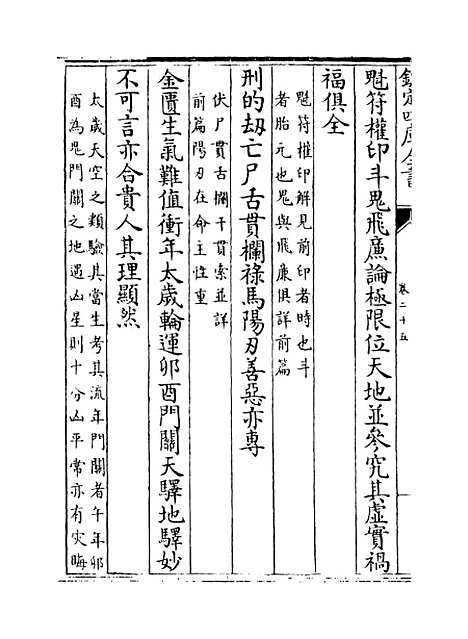 欽定四庫全書
卷二十五
魁符權印斗鬼飛廉論極限位天地並參究其虛實禍
福俱全
魁符權印解見前印者時也斗
者胎元也鬼與飛廉俱詳前篇
刑的劫亡尸舌貫欄祿馬陽刃善惡亦專
伏尸貫舌欄干貫索並詳
前篇陽刃在命主性重
金匱生氣難值衝年太歲輪運卯酉門關天驛地驛妙
不可言亦合貴人其理顯然
太歲天空之類驗其當生考其流年門關者午年卯
酉為鬼門關之地遇凶星則十分凶平常亦有灾晦